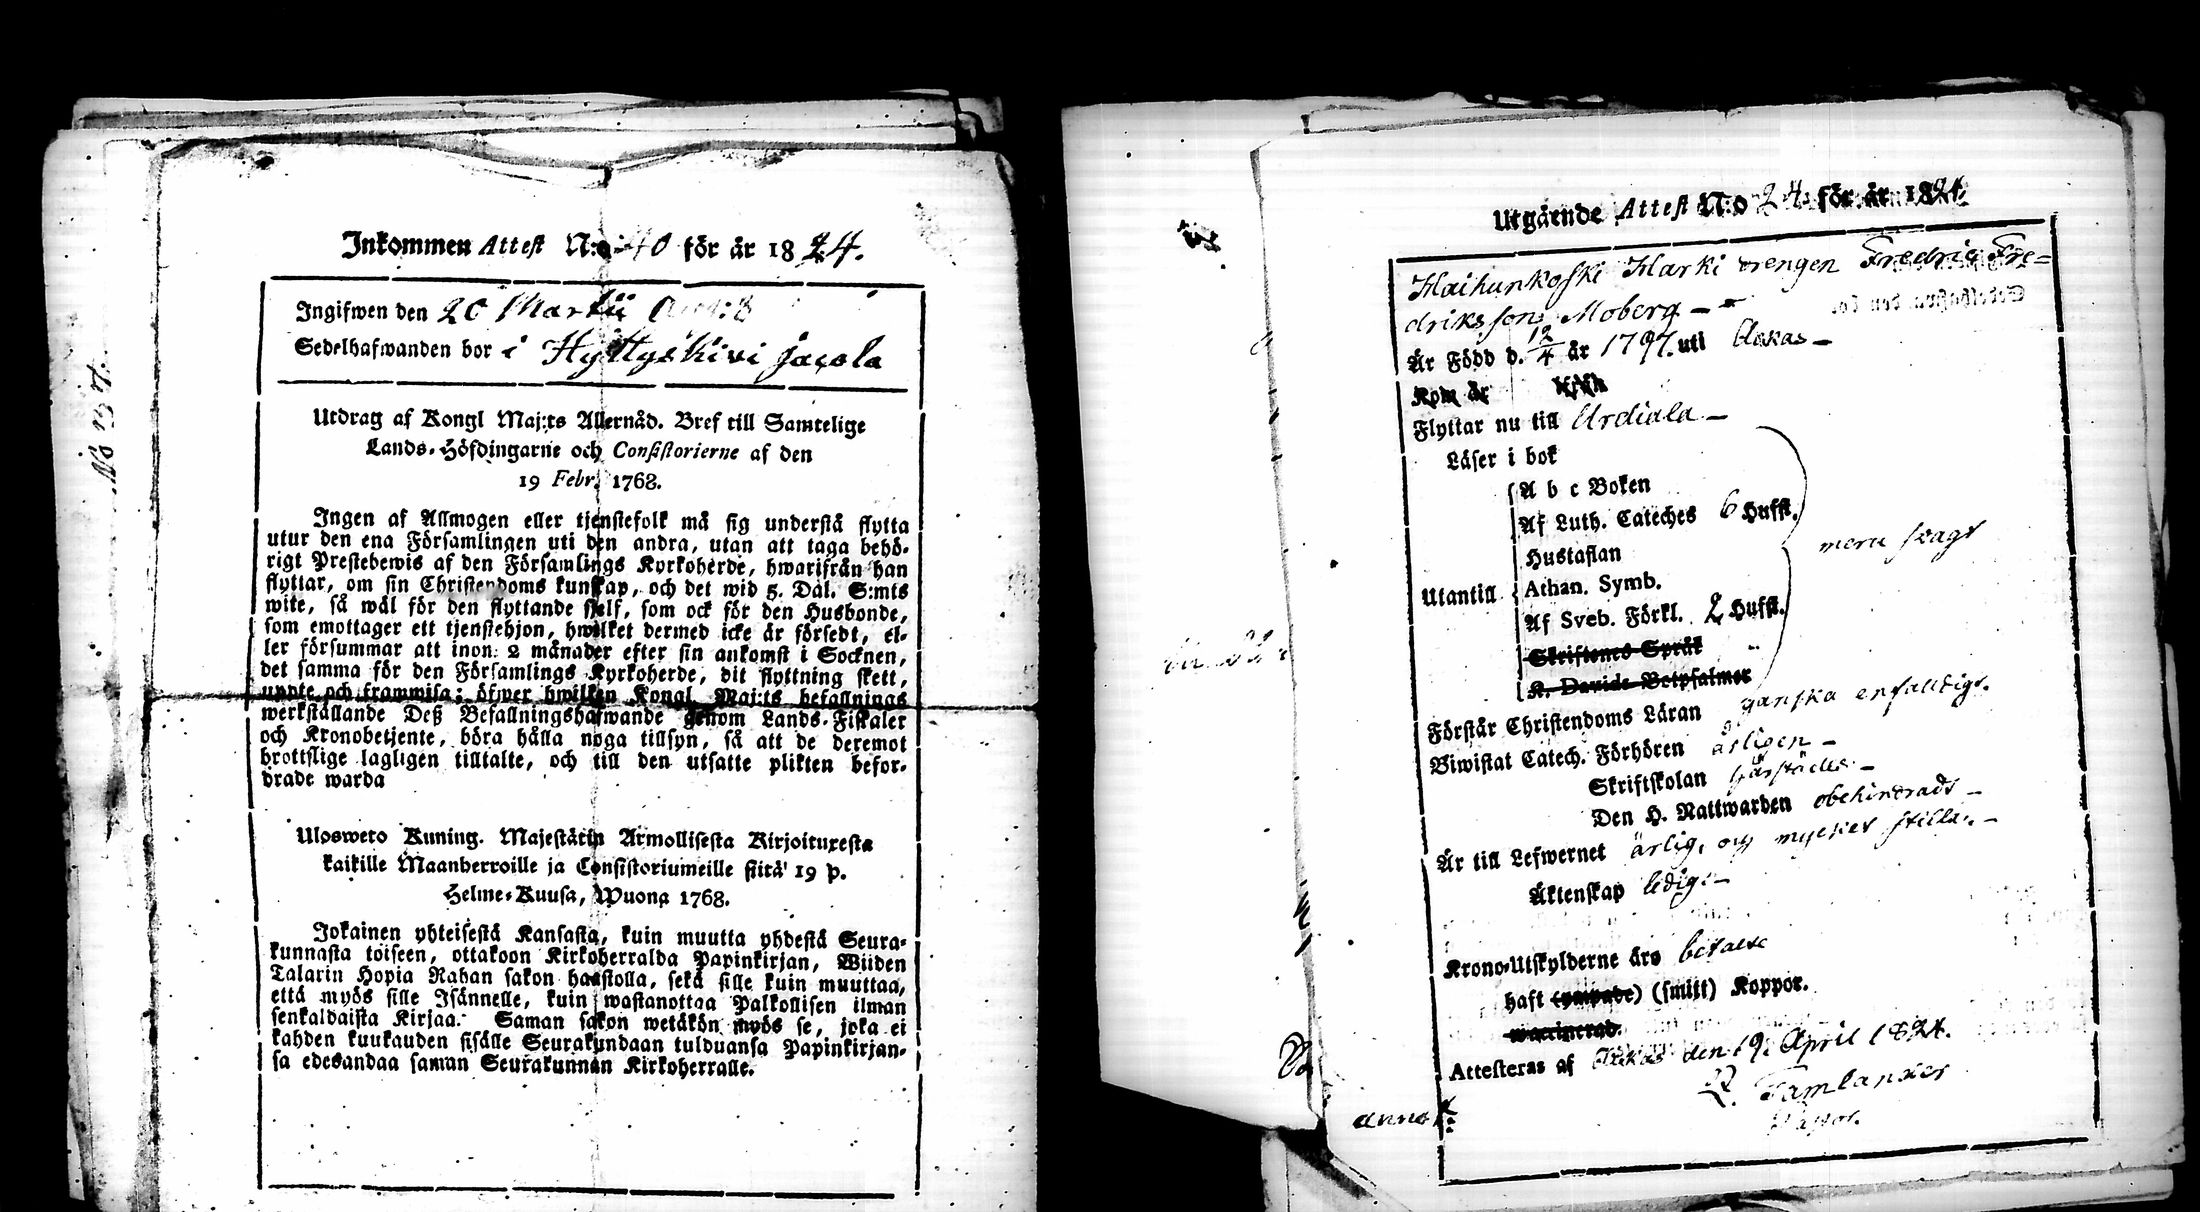 Inkommen Attest N:o 40 för år 1824.
Ingifwen den 20 Martii
Sedelhafwanden bor i Hyttyskivi jacola
Utdrag af Kongl Maj:ts Allernåd. Bref till Samtelige
Lands-Höfdingarne och Consistorierne af den
19 Febr. 1768.
Ingen af Allmogen eller tjenstefolk må sig understå flytta
utur den ena Församlingen uti den andra, utan att taga behö-
rigt Prestebewis af den Församlings Kyrkoherde, hwarifrån han
flyttar, om sin Christendoms kunskap, och det wid 5. Dal. S:mts
wite, så wäl för den flyttande sjelf, som ock för den Husbonde,
som emottager ett tjenstehjon, hwilket dermed icke är försedt, el-
ler försummar att inon 2 månader efter sin ankomst i Socknen,
det samma för den Församlings Kyrkoherde, dit flyttning skett,
uppte och framwisa; öfwer hwilken Kongl. Maj:ts befallnings
werkställande Deß Befallningshafwande genom Lands-Fiskaler
och Kronobetjente, böra hålla noga tillsyn, så att de deremot
brottslige lagligen tilltalte, och till den utsatte plikten befor-
drade warda
Ulosweto Kuning. Majestätin Armollisesta Kirjoituxesta
kaikille Maanherroille ja Consistoriumeille siitä 19 p.
Helme-Kuusa, Wuona 1768.
Jokainen yhteisestä Kansasta, kuin muutta yhdestä Seura-
kunnasta toiseen, ottakoon Kirkoherralda Papinkirjan, Wiiden
Talarin Hopia Rahan sakon haastolla, sekä sille kuin muuttaa,
että myös sille Isännelle, kuin wastanottaa Palkollisen ilman
senkaldaista Kirjaa. Saman sakon wetäkön myös se, joka ei
kahden kuukauden sisälle Seurakundaan tulduansa Papinkirjan-
sa edesandaa saman Seurakunnan Kirkoherralle.
Utgående Attest N:o 24 för år 1824.
Haihunkoski Harki drengen Fredric Fre=
driksson Moberg
Är Född d. 12/4 år 1797. uti Akkas
Kom år
Flyttar nu till Urdiala
Läser i bok
A b c Boken
Af Luth. Cateches 6 Hufst.
Hustaflan
Utantill Athan. Symb.
Af Sveb. Förkl. 2 Hufst.
Skriftenes Språk
K. Davids Botpsalmer
mera svagt
Förstår Christendoms Läran ganska enfaldigt.
Biwistat Catech. Förhören årligen
Skriftskolan härstädes
Den H. Nattwarden obehindradt
Är till Lefwernet ärlig, och mycket stilla,
Äktenskap ledig
Krono-Utskylderne äro betalte
haft (ympade) (smitt) Koppor.
waccinerad.
Attesteras af Akkas den 19. April 1824.
Tamlander
Pastor.